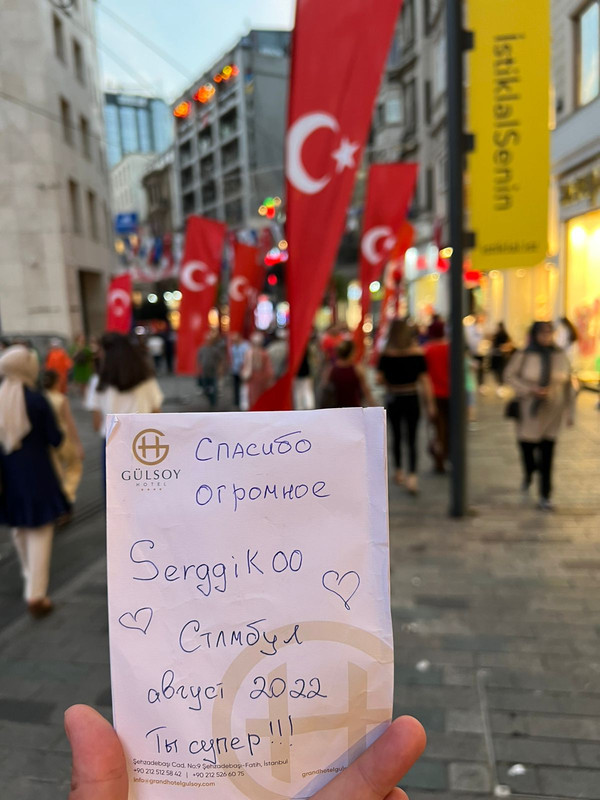 İstiklalSenin
GÜLSOY
HOTEL
Спасибо
огромное
Serggikoo
Стлмбул
август 2022
Ты супер!!!
Şehzadebaşı Cad. No:9 Şehzadebaşı-Fatih, İstanbul
+90 212 512 58 42 | +90 212 526 60 75
info@grandhotelgulsoy.com